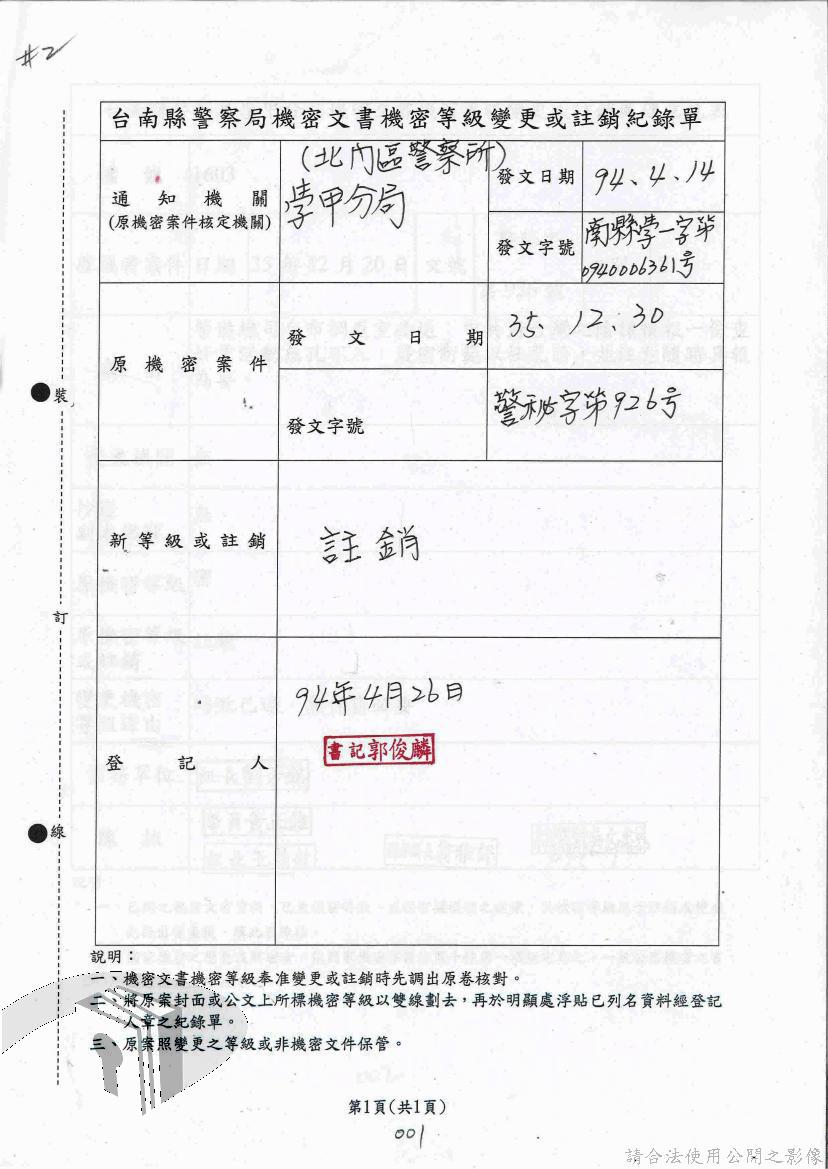 #2
台南縣警察局機密文書機密等級變更或註銷紀錄單
通知機關
(原機密案件核定機關)
(北門區警察所)
學甲分局
發文日期
94、4、14
發文字號
南縣學一字第
0940006361号
原機密案件
發文日期
35、12、30
發文字號
警秘字第926号
新等級或註銷
註銷
登記人
94年4月26日
書記郭俊麟
裝
訂
線
說明：
一、機密文書機密等級奉准變更或註銷時先調出原卷核對。
二、將原案封面或公文上所標機密等級以雙線劃去，再於明顯處浮貼已列名資料經登記
人章之紀錄單。
三、原案照變更之等級或非機密文件保管。
第1頁(共1頁)
001
請合法使用公開之影像